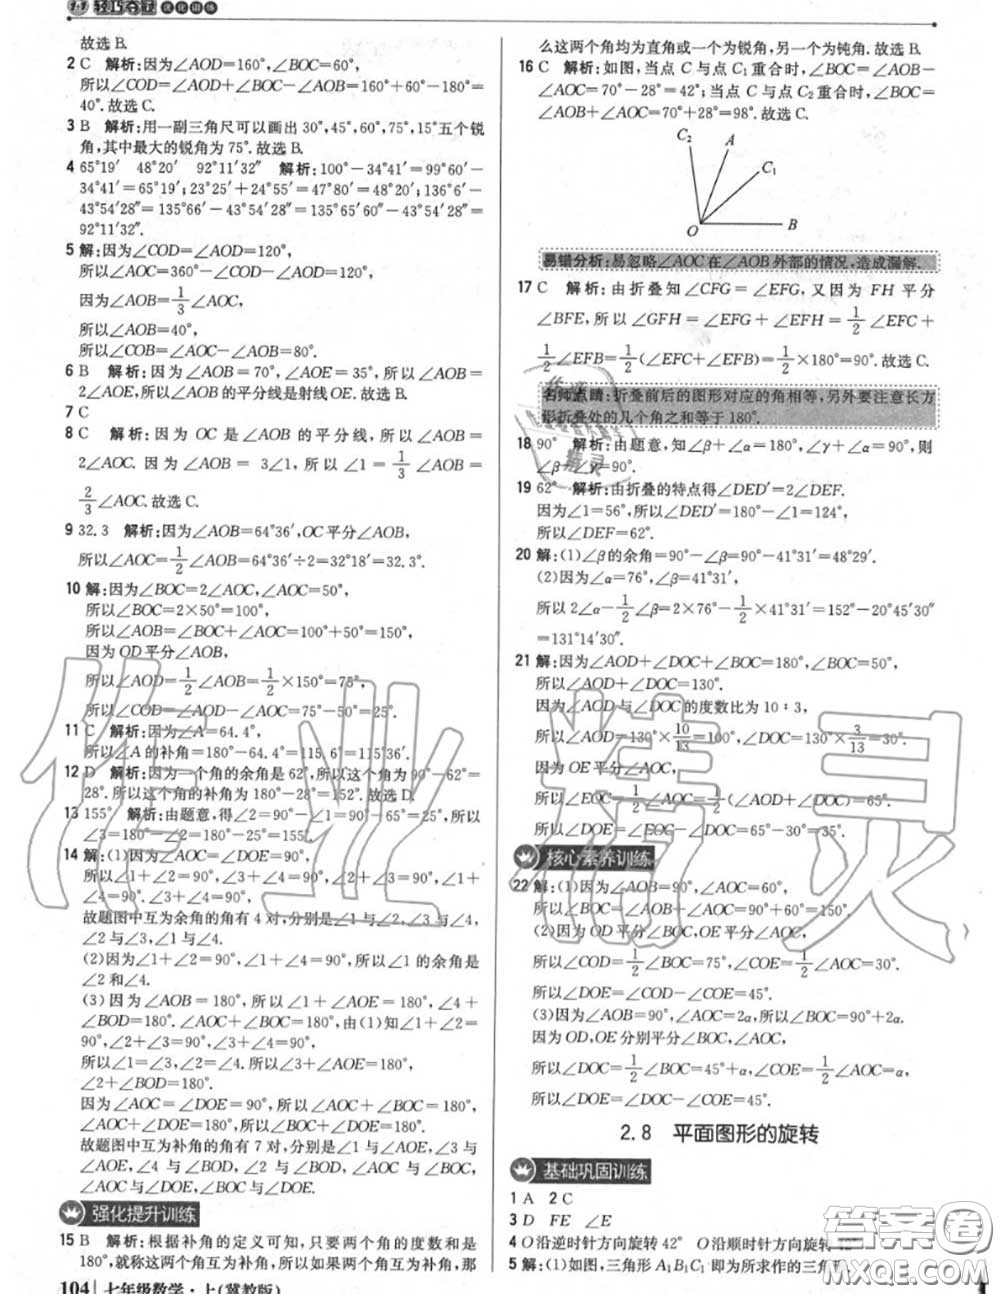 1+1 轻巧夺冠 优化训练
故选 B.
2 C 解析:因为∠AOD=160°,∠BOC=60°,
所以∠COD=∠AOD+∠BOC-∠AOB=160°+60°-180°=
40°. 故选 C.
3 B 解析:用一副三角尺可以画出 30°,45°,60°,75°,15°五个锐
角,其中最大的锐角为 75°. 故选 B.
4 65°19′ 48°20′ 92°11′32″ 解析:100°-34°41′=99°60′-
34°41′=65°19′;23°25′+24°55′=47°80′=48°20′;136°6′-
43°54′28″=135°66′-43°54′28″=135°65′60″-43°54′28″=
92°11′32″.
5 解:因为∠COD=∠AOD=120°,
所以∠AOC=360°-∠COD-∠AOD=120°,
因为∠AOB=1/3∠AOC,
所以∠AOB=40°,
所以∠BOC=∠AOC-∠AOB=80°.
6 B 解析:因为∠AOB=70°,∠AOE=35°,所以∠AOB=
2∠AOE,所以∠AOB 的平分线是射线 OE. 故选 B.
7 C
8 C 解析:因为 OC 是∠AOB 的平分线,所以∠AOB=
2∠AOC. 因为∠AOB= 3∠1,所以∠1=1/3∠AOB=
2/3∠AOC. 故选 C.
9 32.3 解析:因为∠AOB=64°36′,OC 平分∠AOB,
所以∠AOC=1/2∠AOB=64°36′÷2=32°18′=32.3°.
10 解:因为∠BOC=2∠AOC,∠AOC=50°,
所以∠BOC=2×50°=100°,
所以∠AOB=∠BOC+∠AOC=100°+50°=150°.
因为 OD 平分∠AOB,
所以∠AOD=1/2∠AOB=1/2×150°=75°,
所以∠COD=∠AOD-∠AOC=75°-50°=25°.
11 C 解析:因为∠A=64.4°,
所以∠A 的补角=180°-64.4°=115.6°=115°36′.
12 D 解析:因为一个角的余角是 62°,所以这个角为 90°-62°=
28°. 所以这个角的补角为 180°-28°=152°. 故选 D.
13 155° 解析:由题意,得∠2=90°-∠1=90°-65°=25°,所以
∠3=180°-∠2=180°-25°=155°.
14 解:(1)因为∠AOC=∠DOE=90°,
所以∠1+∠2=90°,∠3+∠4=90°,∠2+∠3=90°,∠1+
∠4=90°.
故题图中互为余角的角有 4 对,分别是∠1 与∠2,∠3 与∠4,
∠2 与∠3,∠1 与∠4.
(2)因为∠1+∠2=90°,∠1+∠4=90°,所以∠1 的余角是
∠2 和∠4.
(3)因为∠AOB=180°,所以∠1+∠AOE=180°,∠4+
∠BOD=180°. ∠AOC+∠BOC=180°,由(1)知∠1+∠2=
90°,∠2+∠3=90°,∠3+∠4=90°,
所以∠1=∠3,∠2=∠4. 所以∠3+∠AOE=180°,
∠2+∠BOD=180°.
因为∠AOC=∠DOE=90°,所以∠AOC+∠BOC=180°,
所以∠AOC+∠DOE=180°,∠DOE+∠BOC=180°.
故题图中互为补角的角有 7 对,分别是∠1 与∠AOE,∠4 与
∠BOD,∠AOC 与∠BOC,∠3 与∠AOE,∠2 与∠BOD,
∠AOC 与∠DOE,∠BOC 与∠DOE.
强化提升训练
15 B 解析:根据补角的定义可知,只要两个角的度数和是
180°,就称这两个角互为补角,所以如果两个角互为补角,那
104 七年级数学·上(冀教版)
么这两个角均为直角或一个为锐角,另一个为钝角. 故选 B.
16 C 解析:如图,当点 C 与点 C₁重合时,∠BOC=∠AOB-
∠AOC=70°-28°=42°;当点 C 与点 C₂重合时,∠BOC=
∠AOB+∠AOC=70°+28°=98°. 故选 C.
C₂
A
C₁
O
B
易错分析:易忽略∠AOC 在∠AOB 外部的情况,造成漏解.
17 C 解析:由折叠知∠CFG=∠EFG,又因为 FH 平分
∠BFE,所以∠GFH=∠EFG+∠EFH=1/2∠EFC+
1/2∠EFB=1/2(∠EFC+∠EFB)=1/2×180°=90°. 故选 C.
名师点睛:折叠前后的图形对应的角相等,另外要注意长方
形折叠处的几个角之和等于 180°.
18 90° 解析:由题意,知∠β+∠α=180°,∠γ+∠α=90°,则
∠β-∠γ=90°.
19 62° 解析:由折叠的特点得∠DED′=2∠DEF.
因为∠1=56°,所以∠DED′=180°-∠1=124°,
所以∠DEF=62°.
20 解:(1)∠β的余角=90°-∠β=90°-41°31′=48°29′.
(2)因为∠α=76°,∠β=41°31′,
所以 2∠α-1/2∠β=2×76°-1/2×41°31′=152°-20°45′30″
=131°14′30″.
21 解:因为∠AOD+∠DOC+∠BOC=180°,∠BOC=50°,
所以∠AOD+∠DOC=130°.
因为∠AOD 与∠DOC 的度数比为 10∶3,
所以∠AOD=130°×10/13=100°,∠DOC=130°×3/13=30°.
因为 OE 平分∠AOC,
所以∠EOC=1/2∠AOC=1/2(∠AOD+∠DOC)=65°.
所以∠DOE=∠EOC-∠DOC=65°-30°=35°.
核心素养训练
22 解:(1)因为∠AOB=90°,∠AOC=60°,
所以∠BOC=∠AOB+∠AOC=90°+60°=150°.
(2)因为 OD 平分∠BOC,OE 平分∠AOC,
所以∠COD=1/2∠BOC=75°,∠COE=1/2∠AOC=30°.
所以∠DOE=∠COD-∠COE=45°.
(3)因为∠AOB=90°,∠AOC=2α,所以∠BOC=90°+2α.
因为 OD,OE 分别平分∠BOC,∠AOC,
所以∠DOC=1/2∠BOC=45°+α,∠COE=1/2∠AOC=α,
所以∠DOE=∠DOC-∠COE=45°.
2.8 平面图形的旋转
基础巩固训练
1 A 2 C
3 D FE ∠E
4 O 沿逆时针方向旋转 42° O 沿顺时针方向旋转 42°
5 解:(1)如图,三角形 A₁B₁C₁即为所求作的三角形.
作业精灵
答案圈
MXQE.COM